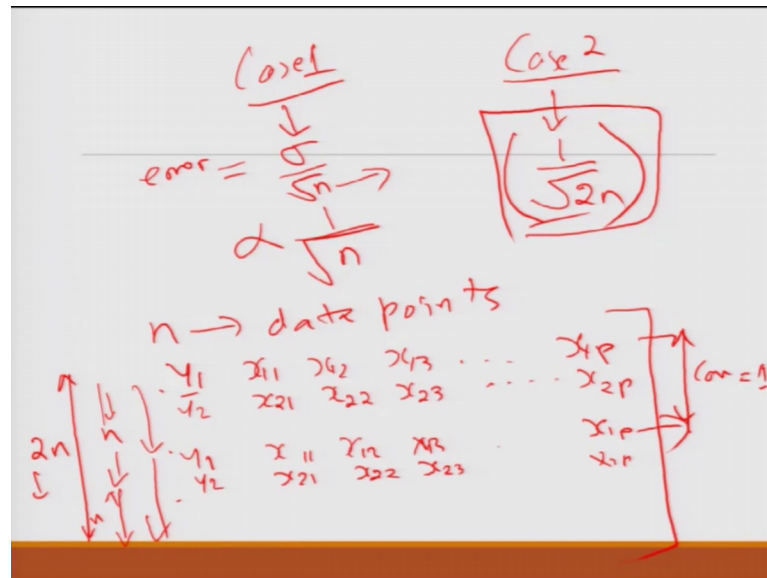 Case1 Case 2
error = σ/√n → (1/√2n)
∝ 1/√n
n → data points
y1 x11 x12 x13 .... x1p
y2 x21 x22 x23 .... x2p
Corr = 1
2n n
y1 x11 x12 x13 x1p
y2 x21 x22 x23 x2p
n